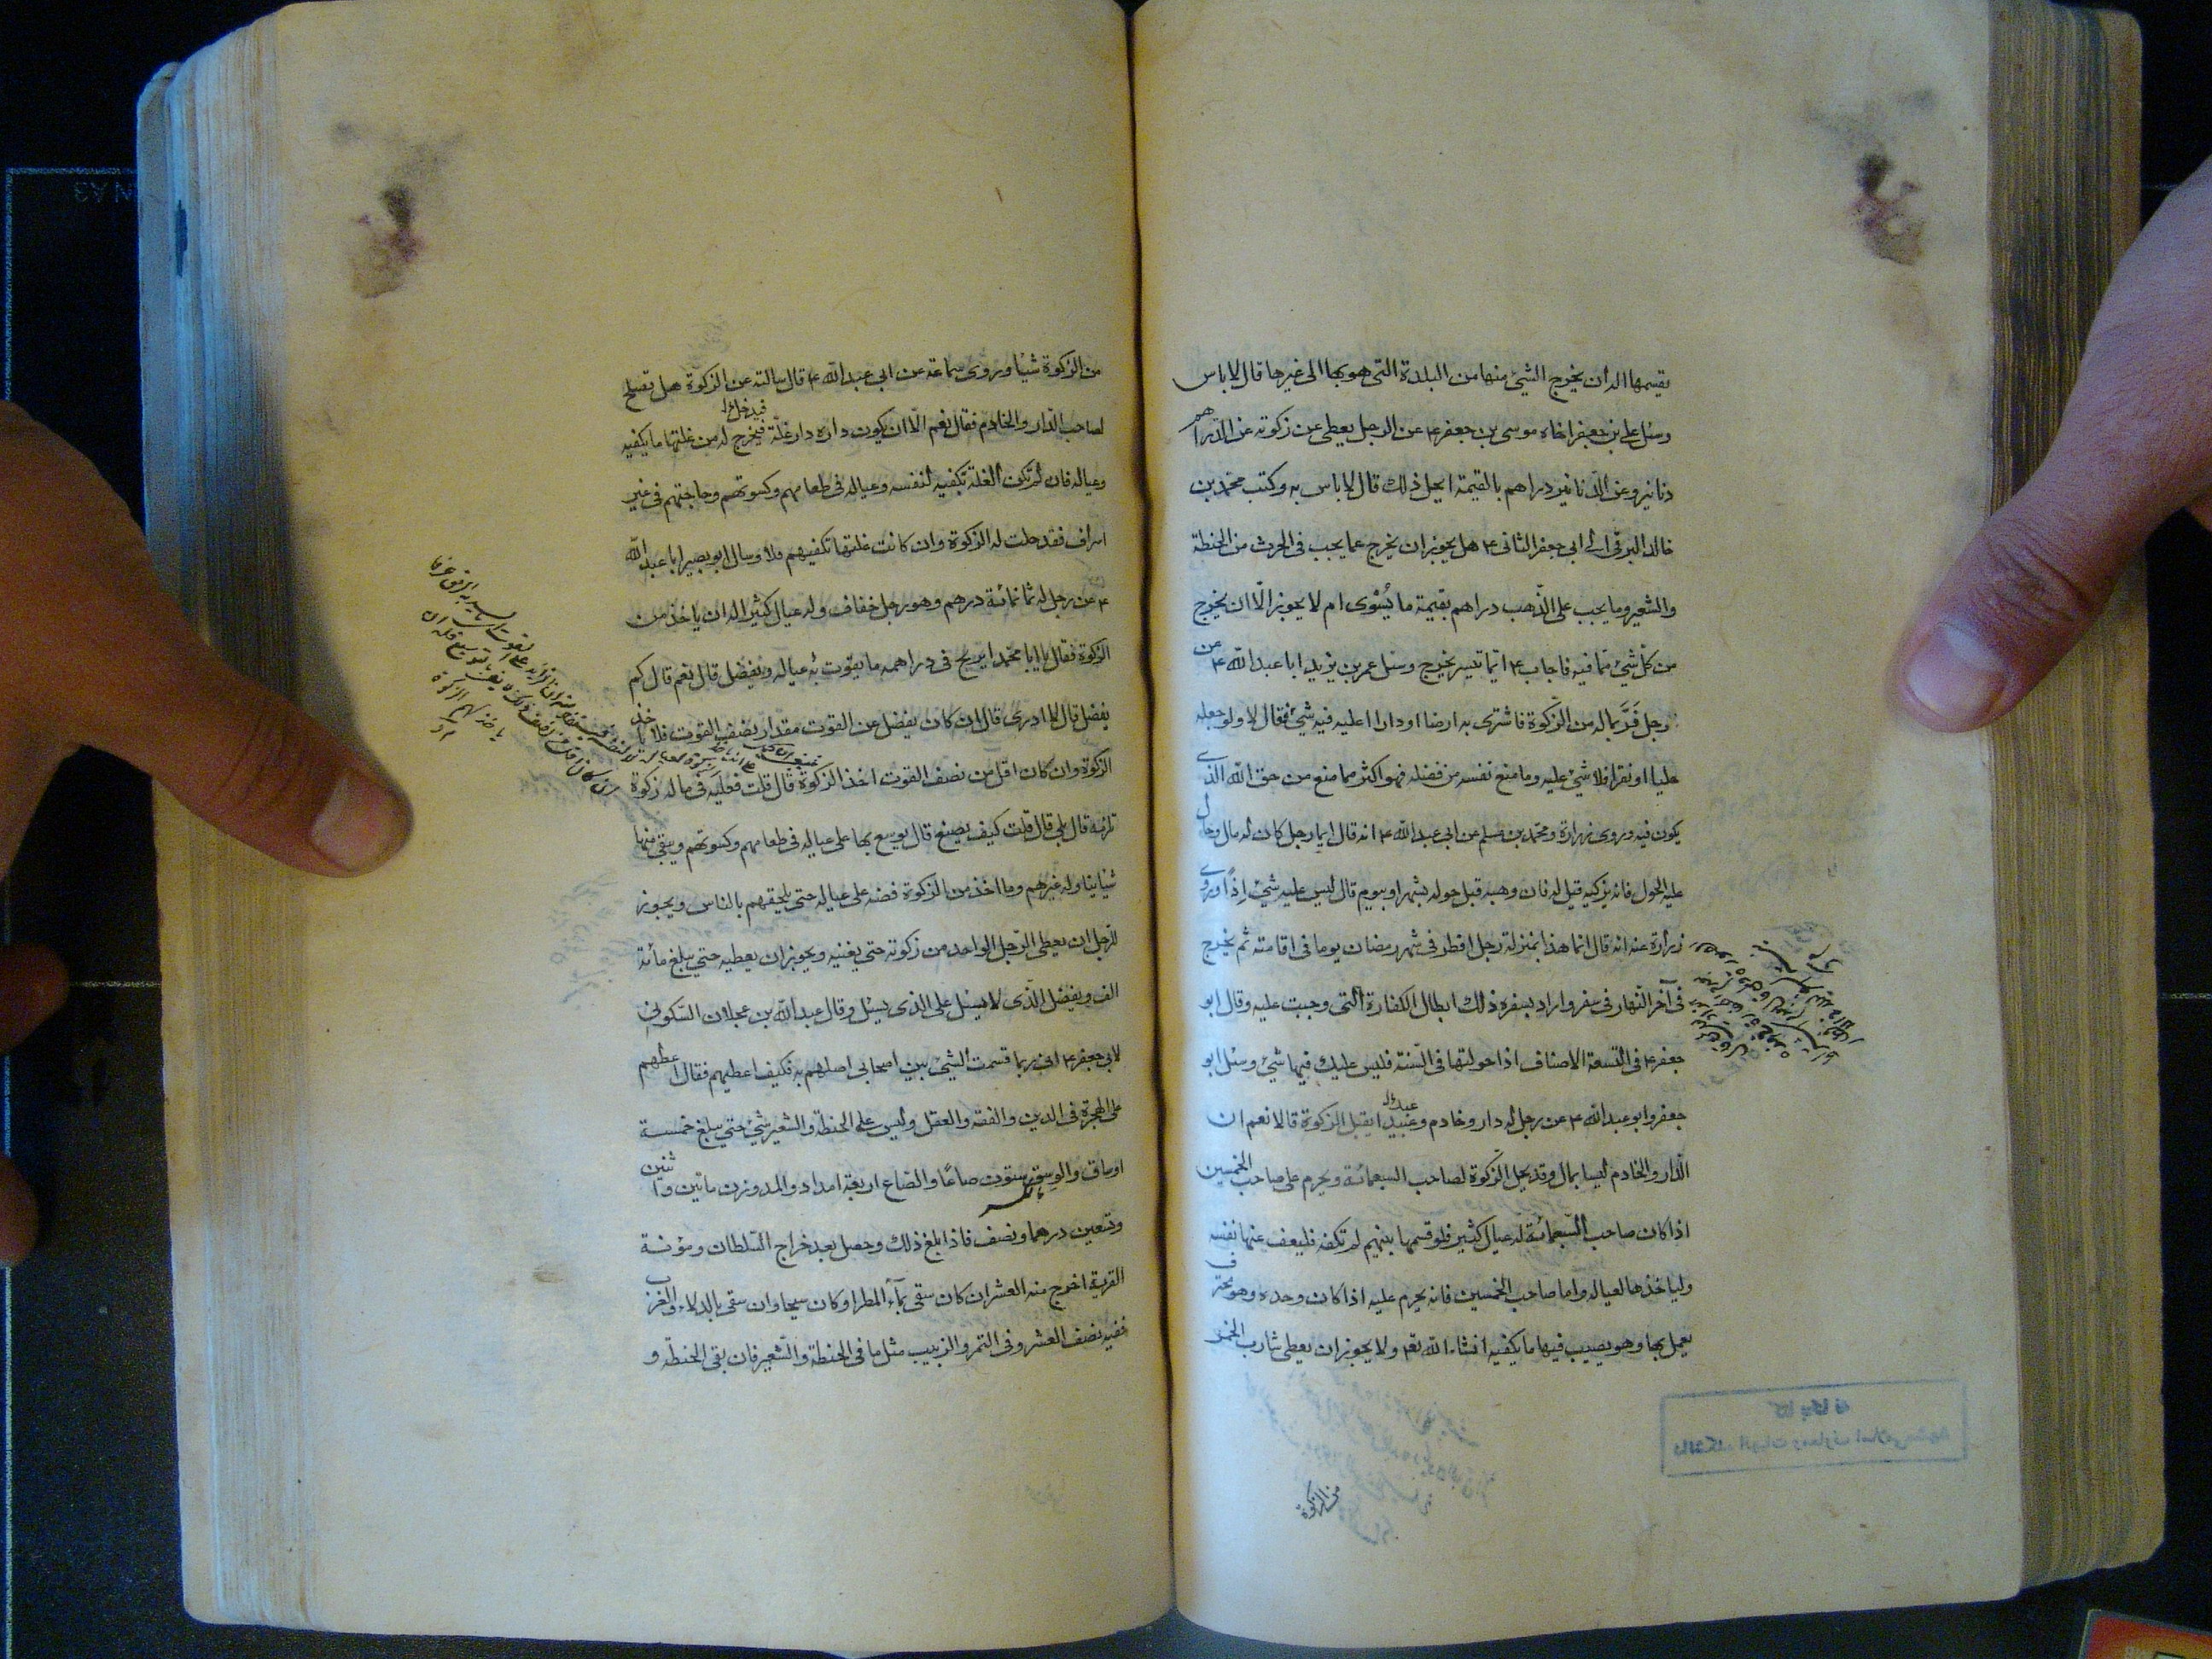 يقسمها اله ان يخرج الشيء منها من البلدة التي هو بها الى غيرها قال لا باس
وسئل علي بن جعفر اخاه موسى بن جعفر ع عن الرجل يعطي عن زكوته عن الدراهم
دنانير وعن الدنانير دراهم بالقيمة ايحل ذلك قال لا باس به وكتب محمد بن
خالد البرقي الى ابي جعفر الثاني ع هل يجوز ان يخرج عما يجب في الحرث من الحنطة
والشعير وما يجب على الذهب دراهم بقيمة ما يسوى ام لا يجوز الا ان يخرج
من كل شيء ما فيه فاجاب ع ايما تيسر يخرج وسئل عمر بن يزيد ابا عبد الله ع عن
رجل فر بماله من الزكوة فاشترى به ارضا او دارا اعليه فيه شيء فقال لا ولو جعله
حليا او نقرا فلا شيء عليه وما منع نفسه من فضله فهو اكثر مما منع من حق الله الذي
يكون فيه وروى زرارة ومحمد بن مسلم عن ابي عبد الله ع انه قال ايما رجل كان له مال وحال
عليه الحول فانه يزكيه قيل له فان وهبه قبل حوله بشهر او بيوم قال ليس عليه شيء اذا وروى
زرارة عنه انه قال انما هذا بمنزلة رجل افطر في شهر رمضان يوما في اقامته ثم يخرج
في آخر النهار في سفر واراد بسفره ذلك ابطال الكفارة التي وجبت عليه وقال ابو
جعفر ع في التسعة الاصناف اذا حولتها في السنة فليس عليك فيها شيء وسئل ابو
جعفر وابو عبد الله ع عن رجل له دار وخادم وعبيد ايقبل الزكوة قالا نعم ان
الدار والخادم ليسا بمال وقد يحل الزكوة لصاحب السبعمائة ويحرم على صاحب الخمسين
اذا كان صاحب السبعمائة له عيال كثير فلو قسمها بينهم لم تكفه فليعف عنها نفسه
ولياخذها لعياله واما صاحب الخمسين فانه يحرم عليه اذا كان وحده وهو محترف
يعمل بها وهو يصيب فيها ما يكفيه انشاء الله تع ولا يجوز ان يعطي شارب الخمر
من الزكوة
من الزكوة شيئا وروى سماعة عن ابي عبد الله ع قال سالته عن الزكوة هل تصلح
لصاحب الدار والخادم فقال نعم الا ان يكون داره دار غلة فيخرج له من غلتها ما يكفيه
وعياله فان لم تكن الغلة تكفيه لنفسه وعياله في طعامهم وكسوتهم وحاجتهم في غير
اسراف فقد حلت له الزكوة وان كانت غلتها تكفيهم فلا وسال ابو بصير ابا عبد الله
ع عن رجل له ثمانمائة درهم وهو رجل خفاف وله عيال كثير اله ان ياخذ من
الزكوة فقال يا ابا محمد ايربح في دراهمه ما يقوت به عياله ويفضل قال نعم قال كم
يفضل قال لا ادري قال ان كان يفضل عن القوت مقدار نصف القوت فلا ياخذ
الزكوة وان كان اقل من نصف القوت اخذ الزكوة قال قلت فعليه في ماله زكوة
تلزمه قال بلى قال قلت كيف يصنع قال يوسع بها على عياله في طعامهم وكسوتهم ويبقي منها
شيئا يناوله غيرهم وما اخذ من الزكوة فضه على عياله حتى يلحقهم بالناس ويجوز
للرجل ان يعطي الرجل الواحد من زكوته حتى يغنيه ويجوز ان يعطيه حتى يبلغ مائة
الف ويفضل الذي لا يسئل على الذي يسئل وقال عبد الله بن عجلان السكوني
لابي جعفر ع اني ربما قسمت الشيء بين اصحابي اصلهم به فكيف اعطيهم فقال اعطهم
على الهجرة في الدين والفقه والعقل وليس على الحنطة والشعير شيء حتى يبلغ خمسة
اوساق والوسق ستون صاعا والصاع اربعة امداد والمد وزن مائتين واثنين
وتسعين درهما ونصف فاذا بلغ ذلك وحصل بعد خراج السلطان ومؤنة
القرية اخرج منه العشر ان كان سقي بماء المطر او كان سيحا وان سقي بالدلاء والغرب
ففيه نصف العشر وفي التمر والزبيب مثل ما في الحنطة والشعير فان بقي الحنطة و